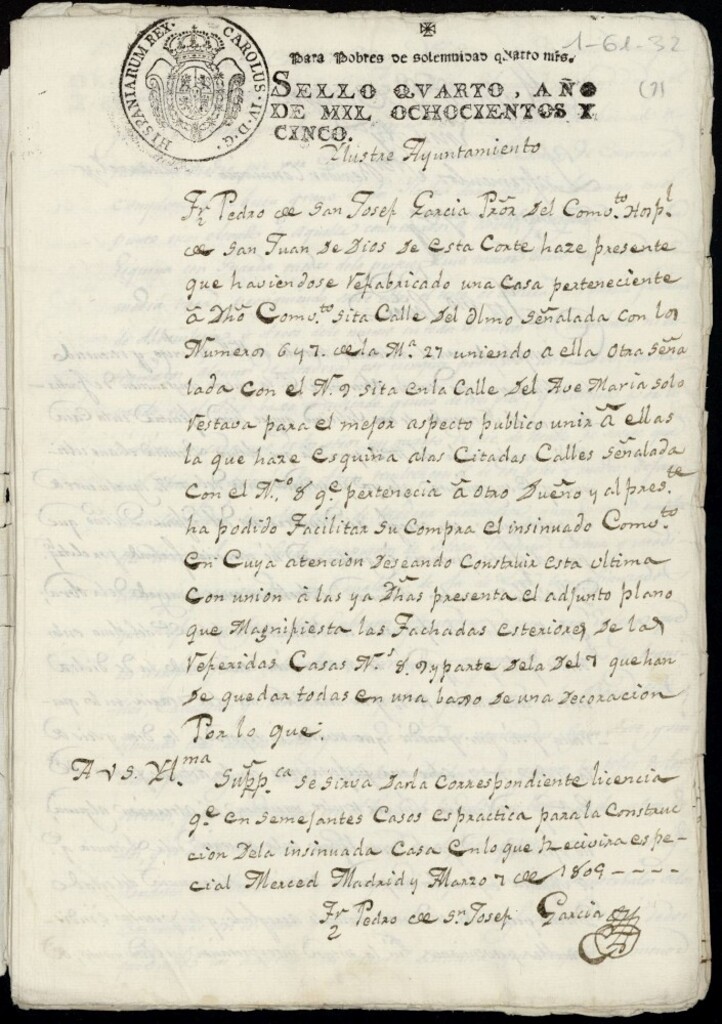 1-61-32
(7)
HISPANIARUM REX. CAROLUS. IV. D. G.
Para Pobres de solemnidad quatro mrs.
SELLO QVARTO, AÑO
DE MIL OCHOCIENTOS Y
CINCO.
Ylustre Ayuntamiento
Fr. Pedro de San Josef Garcia Prõr Del Comv.to Hosp.l
de San Juan De Dios De esta Corte haze presente
que haviendose refabricado una Casa perteneciente
a Dhõ Comv.to sita Calle Del Olmo señalada con los
Numeros 6 y 7. de la M.a 27 uniendo a ella Otra seña
lada Con el N. 9 sita en la Calle Del Ave Maria solo
restava para el mejor aspecto publico unir a ellas
la que haze esquina a las Citadas Calles señalada
Con el N.o 8 q.e pertenecia a Otro Dueño y al pres.te
ha podido Facilitar su Compra el insinuado Comv.to
en Cuya atencion Deseando Construir esta ultima
Con union à las ya Dhas presenta el adjunto plano
que Magnifiesta las Fachadas esteriores De las
referidas Casas N.s 8. 9 y parte Dela Del 7 que han
De quedar todas en una baxo De una Decoracion
Por lo que:
A V S. Yl.ma Supp.ca se sirva Darla correspondiente licencia
q.e en semejantes Casos es practica para la Construc
cion Dela insinuada Casa en lo que Recivira espe-
cial Merced Madrid y Marzo 7 de 1805 - - - -
Fr. Pedro de Sn Josef Garcia